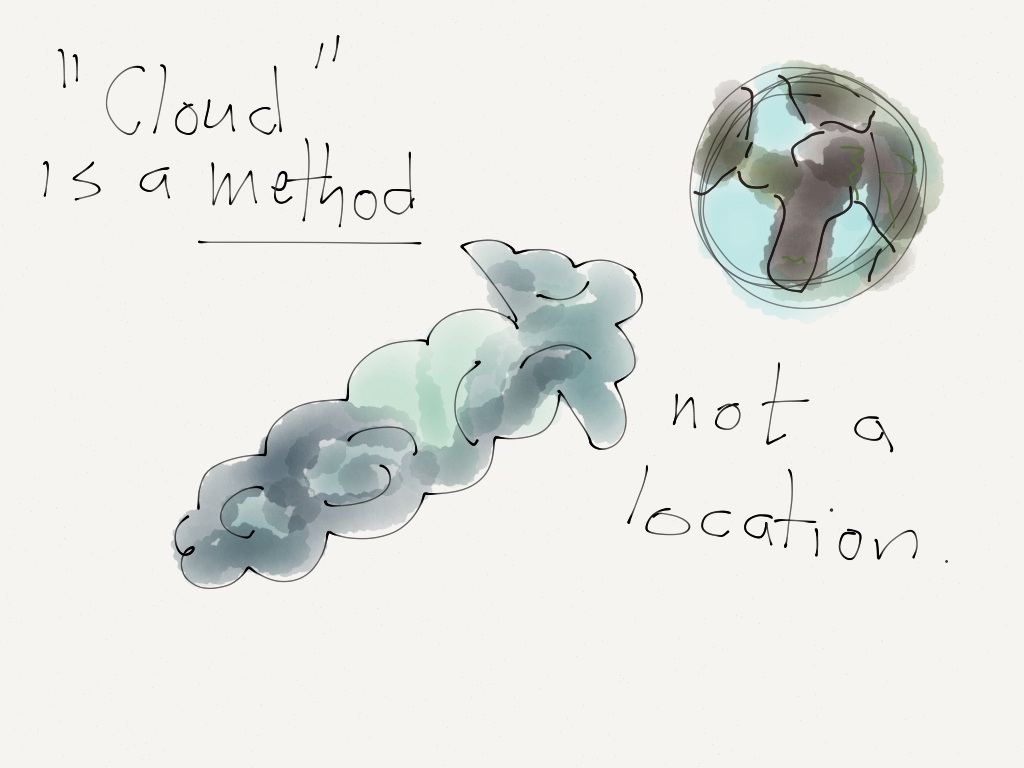 "Cloud"
is a method
not a
location.